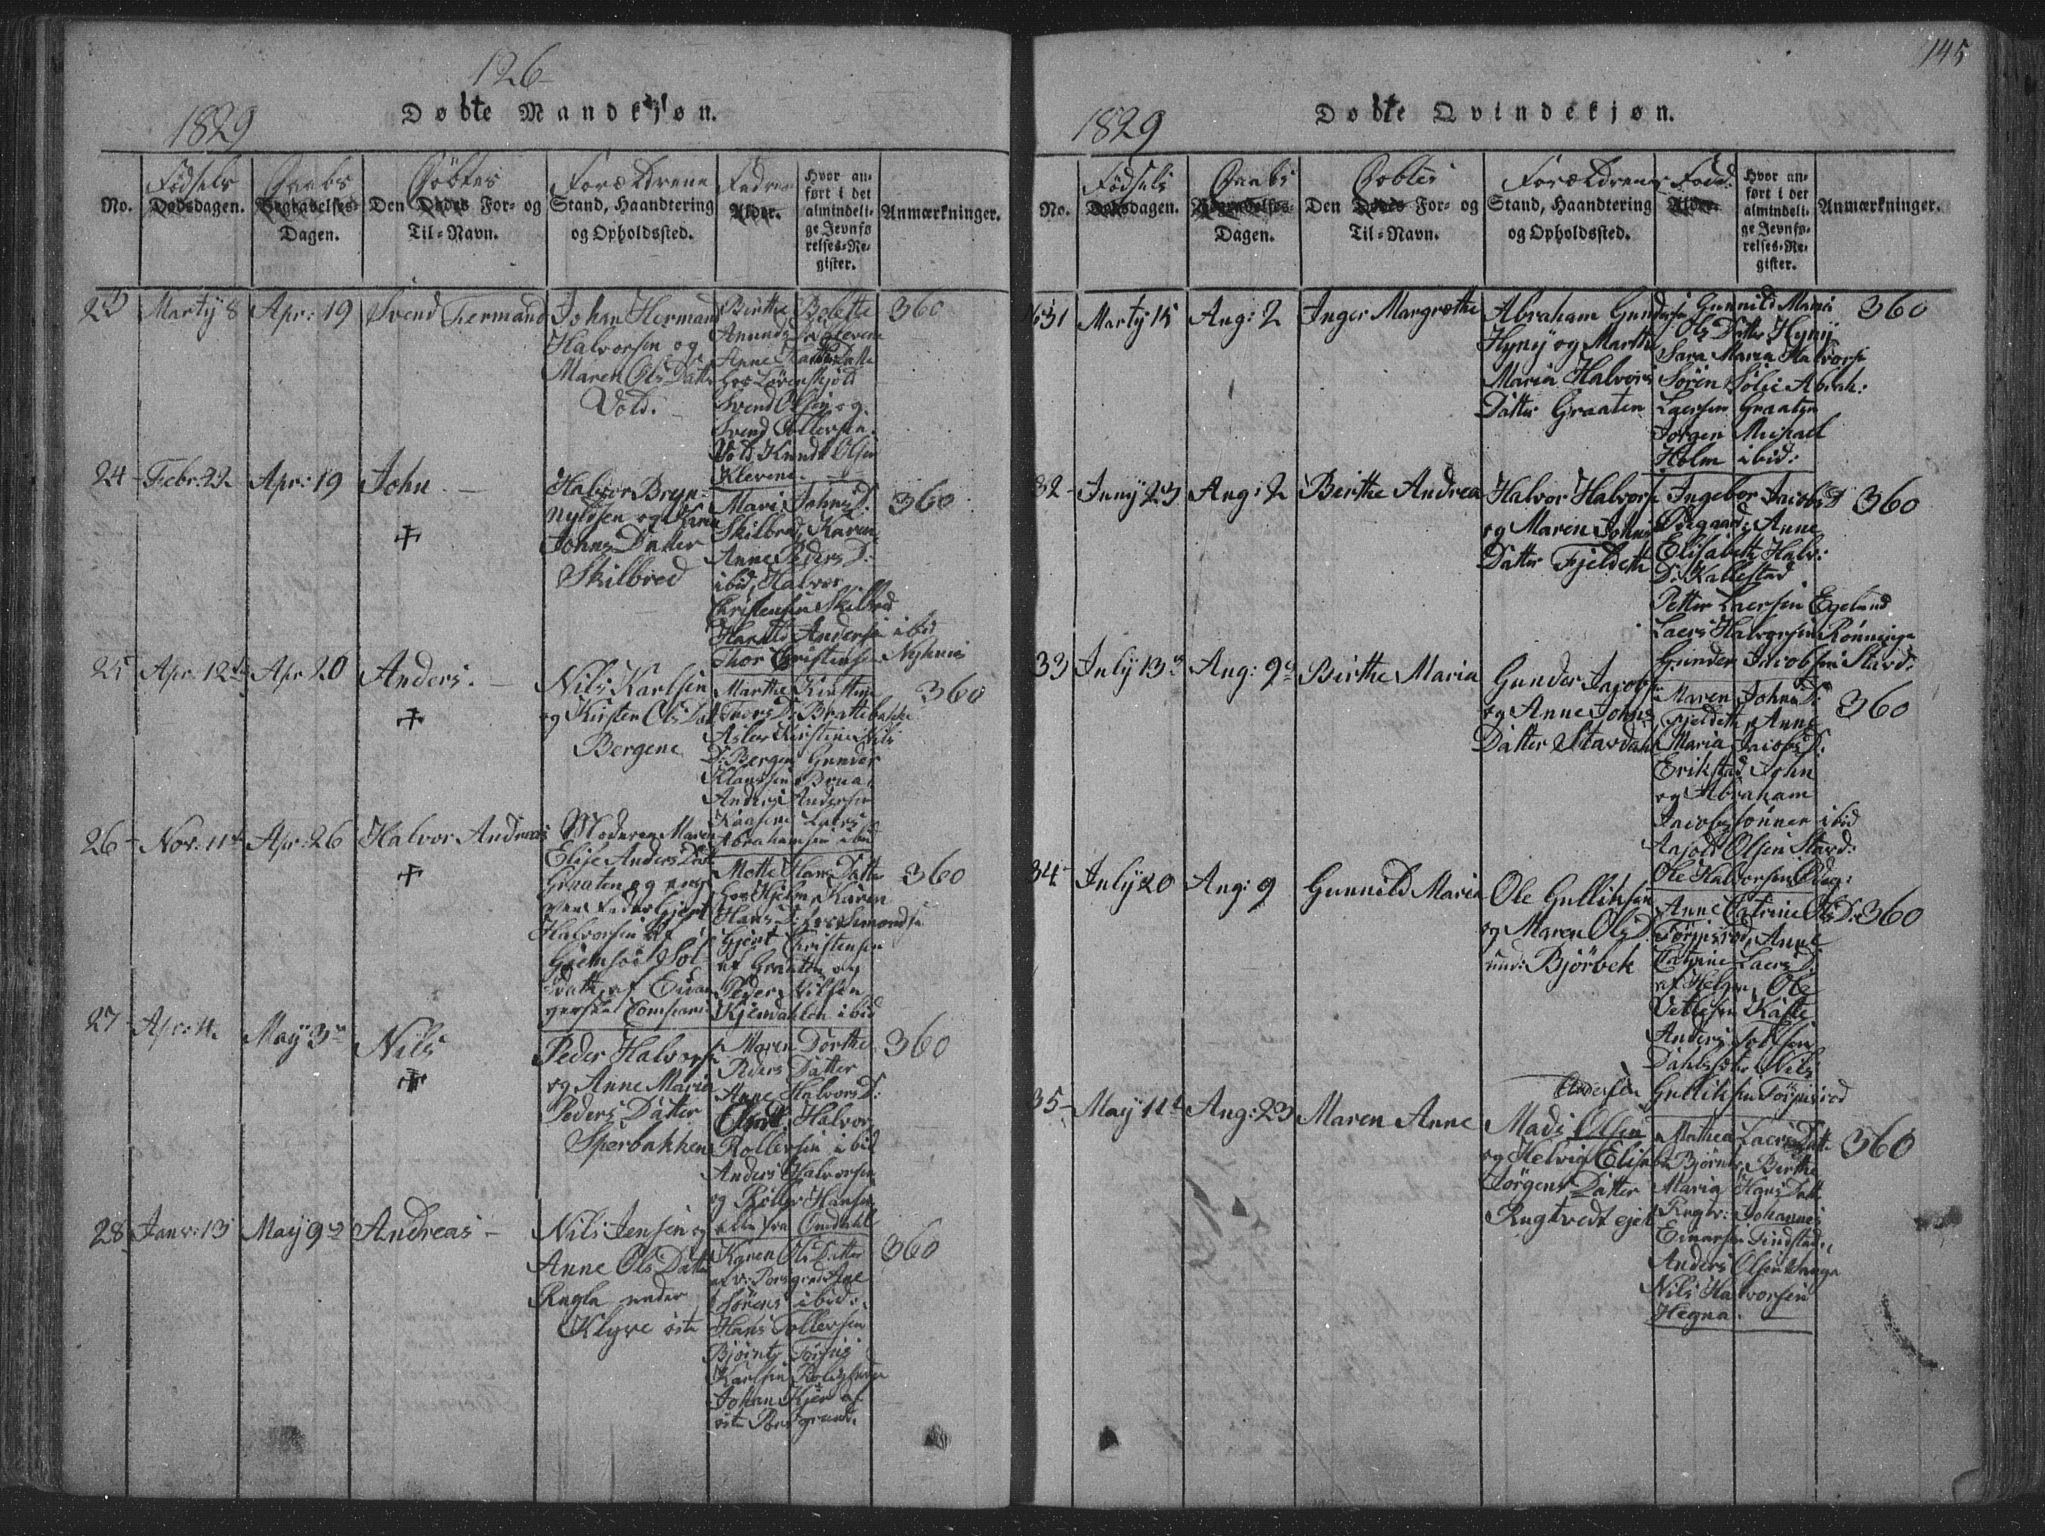 126
1829
Døbte Mandkjøn.
No.
Fødsels
Dødsdagen.
Daabs
Begravelses-
Dagen.
Døbtes
Den Dødes For- og
Til-Navn.
Forældrene
Stand, Haandtering
og Opholdssted.
Fadre
Alder.
Hvor an-
ført i det
almindeli-
ge Jevnfø-
relses-Re-
gister.
Anmærkninger.
23 Marty 8 Apr: 19 Svend Hermand
Johan Hermand
Halvorsen og
Maren Ols Datter
Vold.
Birthe Bolette
Amunds
Anne
hos Løvenskjold
Svend Olsen og
Svend Tollersen
Vold, Knud Olsen
Klevene.
360
24 Febr: 22 Apr: 19 John
Halvor Bryn-
nyldsen og Karen
Johns Datter
Skilbred
Mari Johns D:
Skilbred, Karen
Anne Peders D:
ibid, Halvor
Christensen Skilbred
Harald Andersen ibid
Thor Christensen Nyhuus
360
25 Apr: 12 Apr 20 Anders.
Nils Karlsen
og Kirsten Ols Datt
Bergene
Marthe
Thors D: Brattebakke
Aslor Kirstine Nils
D: Bergen Gunder
Klaussen Brua,
Anders Andersen
Kaasene Laers
Abrahamsen ibid
360
26 Nov: 11 Apr: 26 Halvor Andreas
Moderen Maren
Elise Anders Datt
Graaten og
Fader Gjert
Halvorsen af
Gjemsøe Sol-
dat af
Compani
Mette Hans Datter
hos Hjelm, Karen
Hans D: hos Simonds
Gjert Christensen
af Graaten og
Peder Nilsen
Kjendahlen ibid
360
27 Apr: 4. May 3 Nils
Peder Halvorsen
og Anne Maria
Peders Datter
Sperbakken
Maren Dorthe
Peders Datter
Anne Halvors D:
Halvor
Rollersen ibid
Anders Halvorsen
og Roller Hansen
alle fra Omdahl
360
28 Janv: 13 May 9 Andreas
Nils Jensen og
Anne Ols Datter
Ragla under
Klyve øste
Karen Ols Datter
Porsgrund Ane
Sørens ibid:
Hans Tollersen
Bjørntv
Karlsen
Johan Kjer af
øste Porsgrund.
360
145
1829
Døbte Qvindekjøn.
No.
Fødsels
Dødsdagen.
Daabs
Begravelses-
Dagen.
Døbtes
Den Dødes For- og
Til-Navn.
Forældrenes
Stand, Haandtering
og Opholdssted.
Fadd:
Alder.
Hvor an-
ført i det
almindeli-
ge Jevnfø-
relses-Re-
gister.
Anmærkninger.
31 Marty 15 Aug: 2 Inger Margrethe
Abraham Gunders
Hynÿ og Marthe
Maria Halvors
Datter Graaten
Gunnild Maria
Ols Datter Hynÿ
Sara Maria Halvors
Søren Sølie Abrah:
Laersen Graaten
Jørgen Michael
Holm ibid:
360
32 Juny 23 Aug: 2 Birthe Andrea
Halvor Halvors
og Maren Johns
Datter Fjeldeth
Ingebor Jacobs D
Odegaard: Anne
Elisabeth Halv:
D: Kallestad
Petter Laersen Egelund
Laers Halvorsen Rønninge
Gunder Jacobsen Stard:
360
33 July 13 Aug: 9 Birthe Maria
Gunder Jacobs
og Anne Johns
Datter Stardahl
Maren Johns D:
Fjeldeth, Anne
Maria Jacobs D:
Erikstad John
og Abraham
Jacobsønner ibid
Olsen Stard:
Ole Halvorsen Ødeg:
360
34 July 20 Aug: 9 Gunnild Maria
Ole Gulliksen
og Maren Ols D
und: Bjørbek
Anne Catrine Ols D:
Torjusrød, Anne
Catrine Laers D
af Helgen, Ole
Vetlesen Kaste
Anders Jacobsen
Nils
Gulliksen Torjusrød
360
35 May 11 Aug: 23 Maren Anne
Andersen
Mads Olsen
og Helvig Elisab
Jørgens Datter
Rugtvedt ejet
Mathea Laers Datt.
Bjørntv, Birthe
Maria Hans Datt
Rugtv: Johannes
Einarsen Findstad
Anders Olsen
Nils Halvorsen
Hegna.
360